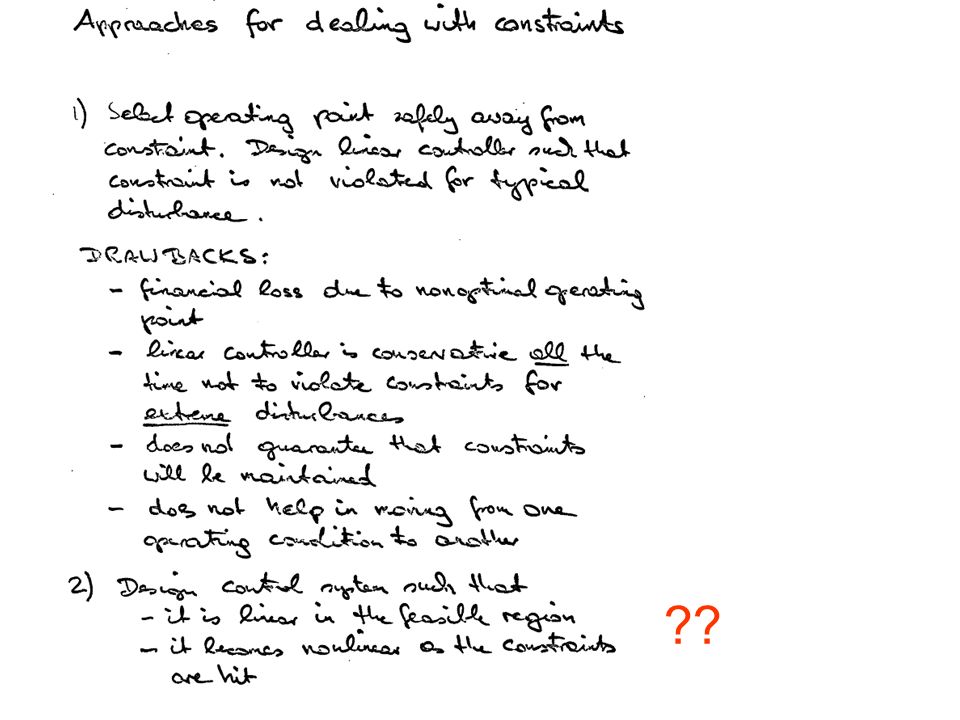 Approaches for dealing with constraints
1) Select operating point safely away from
constraint. Design linear controller such that
constraint is not violated for typical
disturbance.
DRAWBACKS:
- financial loss due to nonoptimal operating
point
- linear controller is conservative all the
time not to violate constraints for
extreme disturbances
- does not guarantee that constraints
will be maintained
- does not help in moving from one
operating condition to another
2) Design control system such that
- it is linear in the feasible region
??
- it becomes nonlinear as the constraints
are hit